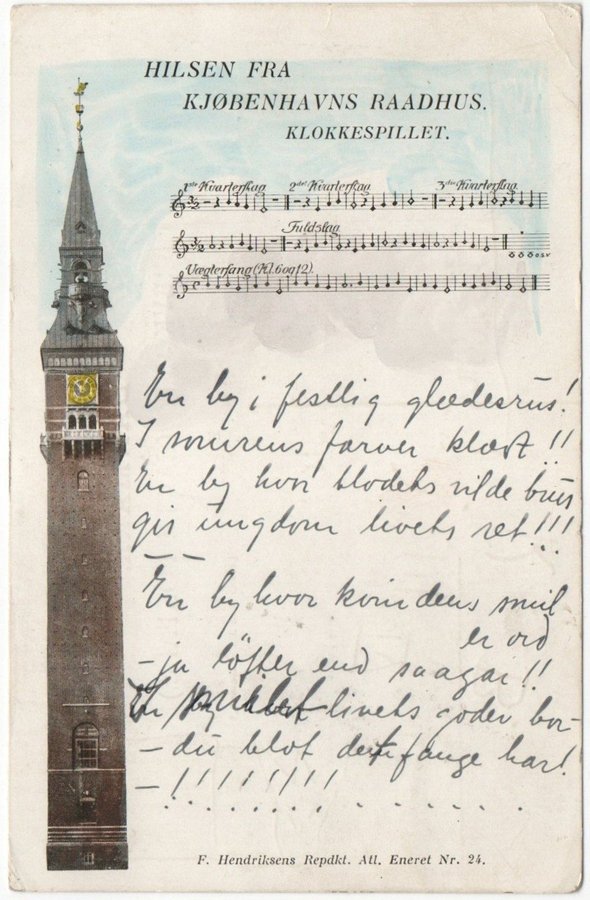 HILSEN FRA
KJØBENHAVNS RAADHUS.
KLOKKESPILLET.
1ste Kvarterslag 2det Kvarterslag 3die Kvarterslag
Fuldslag
O.S.V.
Vægtersang (Kl. 6 og 12).
En by i festlig glædesrus!
I somrens farver klædt!!
En by hvor blodets vilde brus
gir ungdom livets ret!!!
En by hvor kvindens smil
er ord
- ja løfter end saagar!!
livets goder bor
- du blot dem fange har!
- !!!!!!!!
F. Hendriksens Repdkt. Atl. Eneret Nr. 24.